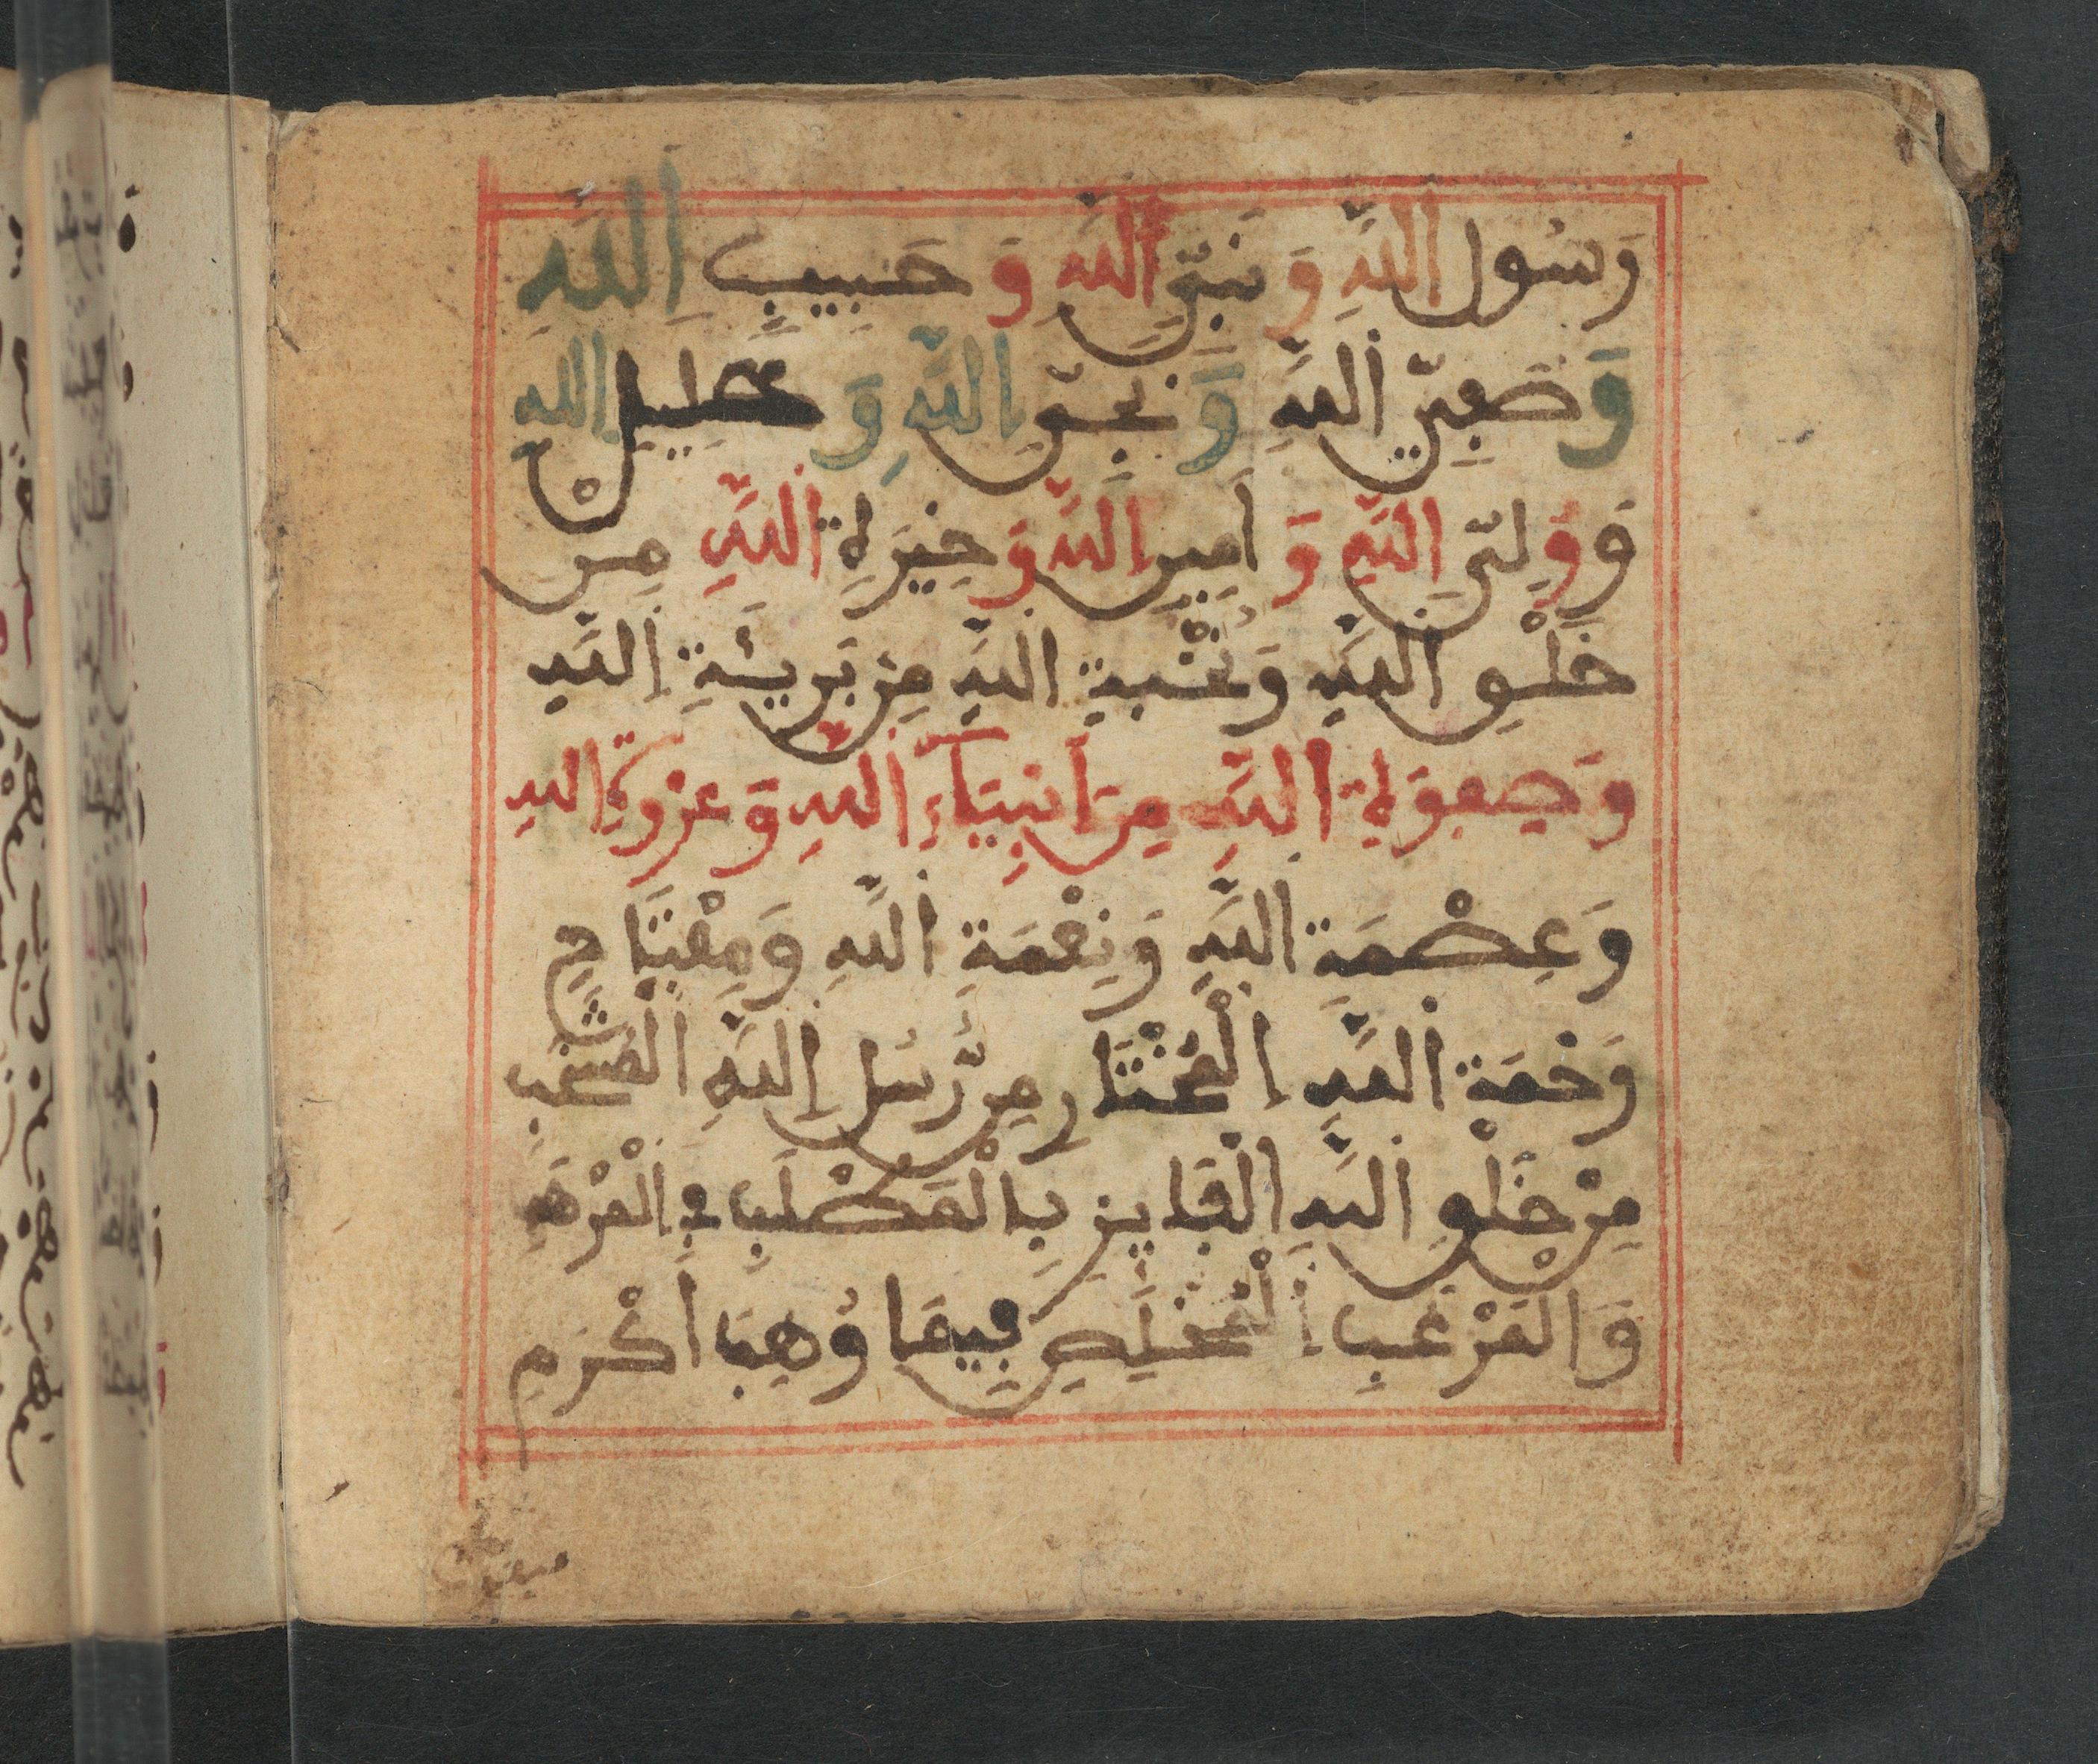 وَسُول اللَّهِ وَنَبِيِّ اللَّهِ وَحَبِيبِ اِللَّهِ
وَصَفِيِّ اَللَّهِ وَنَجِيِّ اِللَّهِ وَخَلِيلِ اِللَّهِ
وَوَلِيِّ اِللَّهِ وَأَمِينِ اِللَّهِ وَخِيَرَةِ اللَّهِ مِنْ
خَلْقِ اللَّهِ وَنُخْبَةِ اللَّهِ مِن بَرِيئَةِ اِللَّهِ
وَصَفْوَةِ اللَّهِ مِنَ اَنبِيَآءِ اللَّهِ وَعُرْوَةِ اللَّهِ
وَعِصْمَةِ اللَّهِ وَنِعْمَةِ اَللَّهِ وَمِفْتَاحِ
رَحْمَةِ اَللَّهِ اِلْمُخْتَارِ مِن رُّسُلِ اِللَّهِ اَلْمُنتَخَبِ
مِنْ خَلْقِ اَللَّهِ اَلْفَايِزِ بِالْمَطْلَبِ فِي اِلْمَرْهَبِ
وَالْمَرْغَبِ اِلْمُخْلَصِ فِيمَا وُهِبَ أَكْرَمِ
مبعوث